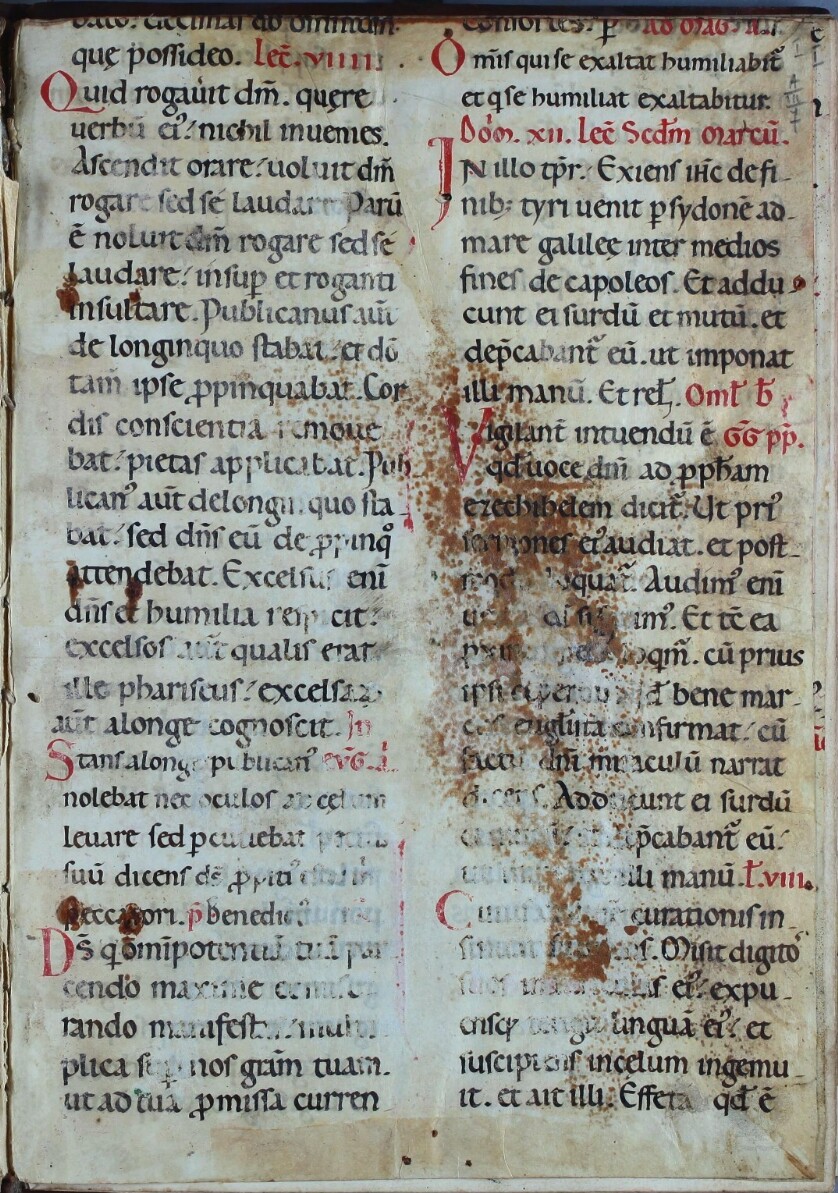 bato. decimas do omnium.
quę possideo. Lec̄. viiii.
Quid rogauit dm̄. quęre
uerbū ei᷒ nichil inuenies.
Ascendit orare uoluit dm̄
rogare sed se laudare Parū
ē noluit dm̄ rogare sed se
laudare. insup̱ et roganti
insultare. Publicanus aūt
de longinquo stabat. et dō
tam̄ ipse ꝓpinquabat. Cor
dis conscientia remoue
bat. pietas applicabat. Pub
lican᷒ aūt delongin quo sta
bat. sed dn̄s eū de ꝓpinq̊
attendebat. Excelsus eni
dn̄s et humilia respicit.
excelsos aūt qualis erat
ille phariseus. excelsa
aūt alonge cognoscit. In
Stans alonge publican᷒ euḡ.
nolebat nec oculos ad cęlum
leuare sed ꝑcutiebat
suū dicens ds̄ ꝓpiti᷒
peccatori. p̄ benedic᷒
Ds̄ q om̄ipotentiā tuā par
cendo maxime et mise
rando manifestas. multi
plica sup̱ nos grām tuam.
ut ad tua ꝓmissa curren
consortes. p̱ ad
Om̄is qui se exaltat humiliabit̄
et q se humiliat exaltabitur.
Dōm. xii. Lec̄ Scdm̄ marcū.
IN illo tp̄r. Exiens ih̄c de fi
nib; tyri uenit ꝑ sydonē ad
mare galileę inter medios
fines de capoleos. Et addu
cunt ei surdū et mutū. et
dep̄cabant̄ eū. ut imponat
illi manū. Et rel̄. Oml̄ b̄
Vigilant̄ intuendū ē GḠ pp̄.
qd̄ uoce dn̄i ad ꝓph̄am
ezechihelem dicit̄. Ut pri᷒
sermones ei᷒ audiat. et post
modū loquat̄. Audim᷒ eni
im᷒. Et tē ea
oqm̄. cū prius
ipsi bene mar
cus euglista confirmat. cū
factū dn̄i miraculū narrat
dicens. Adducunt ei surdū
dep̄cabant̄ eū.
illi manū. L̄. viii.
curationis in
Misit digito᷒
suos ei᷒ expu
ensq linguā ei᷒ et
suscipiens in celum ingemu
it. et ait illi. Effeta qd̄ ē